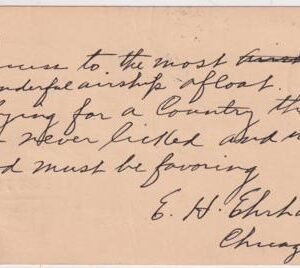 to the most
airship afloat.
for a Country th
never licked and
must be favoring
E. H. Ehrh
Chicag